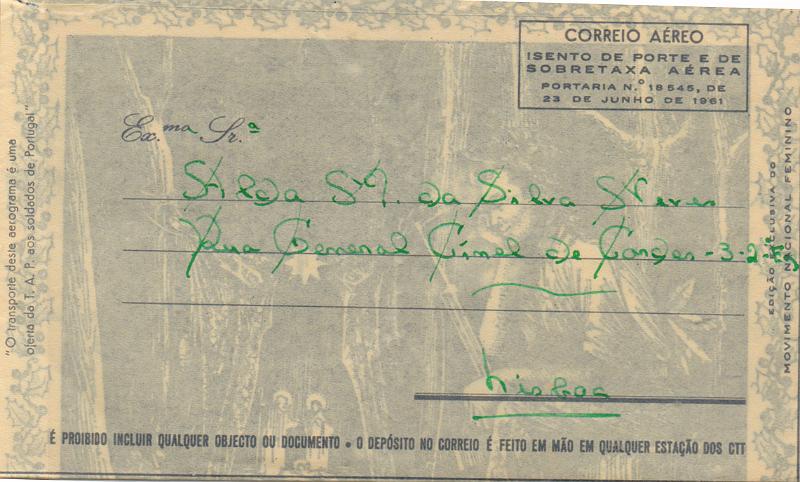 CORREIO AÉREO
ISENTO DE PORTE E DE
SOBRETAXA AÉREA
PORTARIA N.º 18545, DE
23 DE JUNHO DE 1961
Ex.ma Sr.ª
da Silva
Rua General de
Lisboa
É PROIBIDO INCLUIR QUALQUER OBJECTO OU DOCUMENTO • O DEPÓSITO NO CORREIO É FEITO EM MÃO EM QUALQUER ESTAÇÃO DOS CTT
"O transporte deste aerograma é uma
oferta da T. A. P. aos soldados de Portugal"
EDIÇÃO EXCLUSIVA DO
MOVIMENTO NACIONAL FEMININO